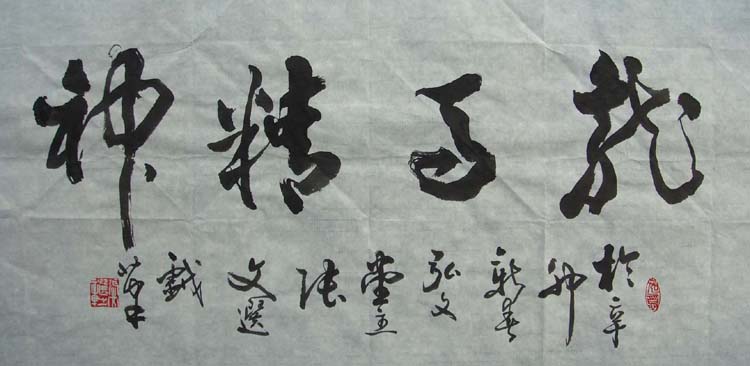 龍馬精神
於辛卯新春弘文堂主張文選戲筆